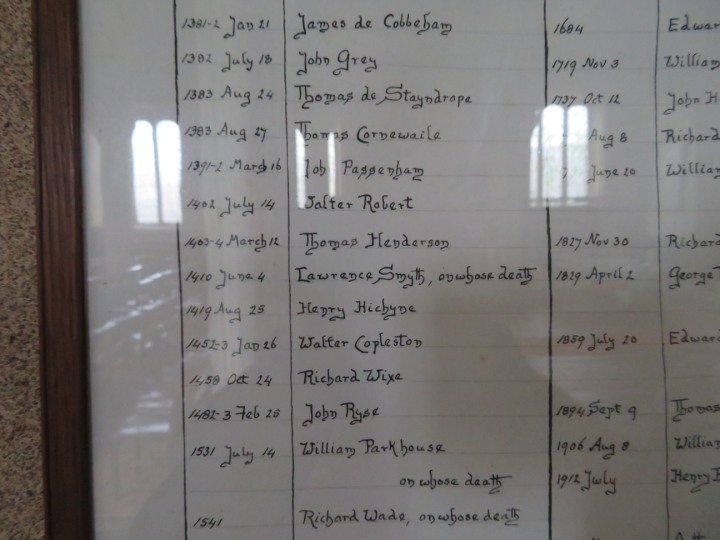 1381-2 Jan 21 James de Cobbeham
1382 July 18 John Grey
1383 Aug 24 Thomas de Stayndrope
1383 Aug 27 Thomas Cornewaile
1391-2 March 16 Passenham
1402 July 14 Walter Robert
1403-4 March 12 Thomas Henderson
1410 June 4 Lawrence Smyth, on whose death
1419 Aug 25 Henry Hichyne
1452-3 Jan 26 Walter Copleston
1458 Oct 24 Richard Wixe
1482-3 Feb 25 John Ryse
1531 July 14 William Parkhouse
on whose death
1541 Richard Wade, on whose death
1684 Edwar
1719 Nov 3 William
1737 Oct 12 John H
Aug 8 Richard
June 20 William
1827 Nov 30 Richard
1829 April 2 George
1859 July 20 Edwar
1894 Sept 9 Thomas
1906 Aug 8 William
1912 July Henry